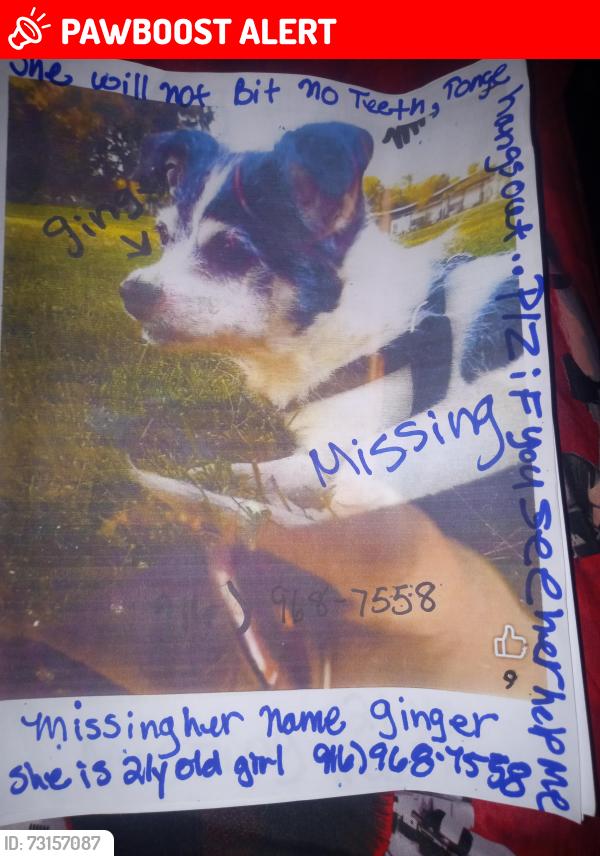 PAWBOOST ALERT
She will not Bit no Teeth, Tonge
hangsout.. Plz if you see her help me
ging
Missing
916) 968-7558
9
Missing her name ginger
she is 21y old girl 916) 968-7558
ID: 73157087